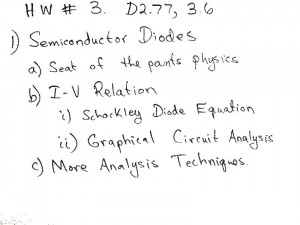 HW # 3. D2.77, 3.6
1) Semiconductor Diodes
a) Seat of the pants physics
b) I-V Relation
i) Schockley Diode Equation
ii) Graphical Circuit Analysis
c) More Analysis Techniques.